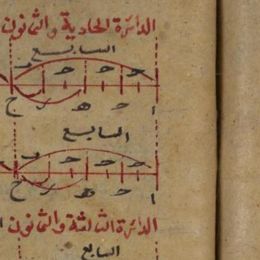 الدائرة الحادية والثمانون
السابع
د ح ح ح
ح ه ح ا
السابع
د ح ح ح
ح ه ح ا
الدائرة الثالثة والثمانون
السابع